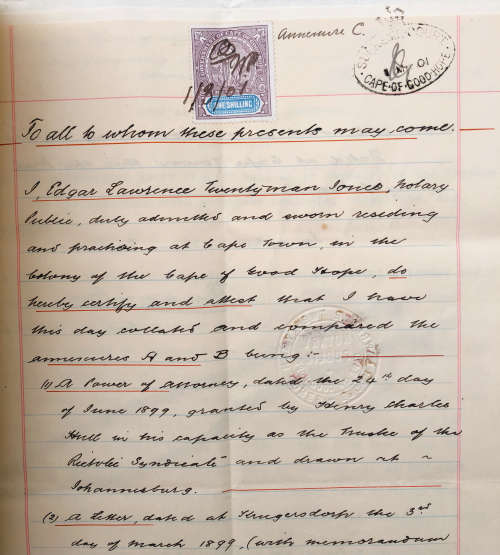 Annexure C.
1/3/01
ONE SHILLING
SUPREME COURT
01
CAPE OF GOOD HOPE
To all to whom these presents may come.
I, Edgar Lawrence Twentyman Jones, Notary
Public, duly admitted and sworn residing
and practising at Cape Town, in the
Colony of the Cape of Good Hope, do
hereby certify and attest that I have
this day collated and compared the
annexures A and B being:-
(1) A Power of Attorney, dated the 24th day
of June 1899, granted by Henry Charles
Hull in his capacity as the Trustee of the
Rietvlei Syndicate and drawn at ~
Johannesburg.
(2) A Letter, dated at Krugersdorp the 3rd
day of March 1899, (with memorandum